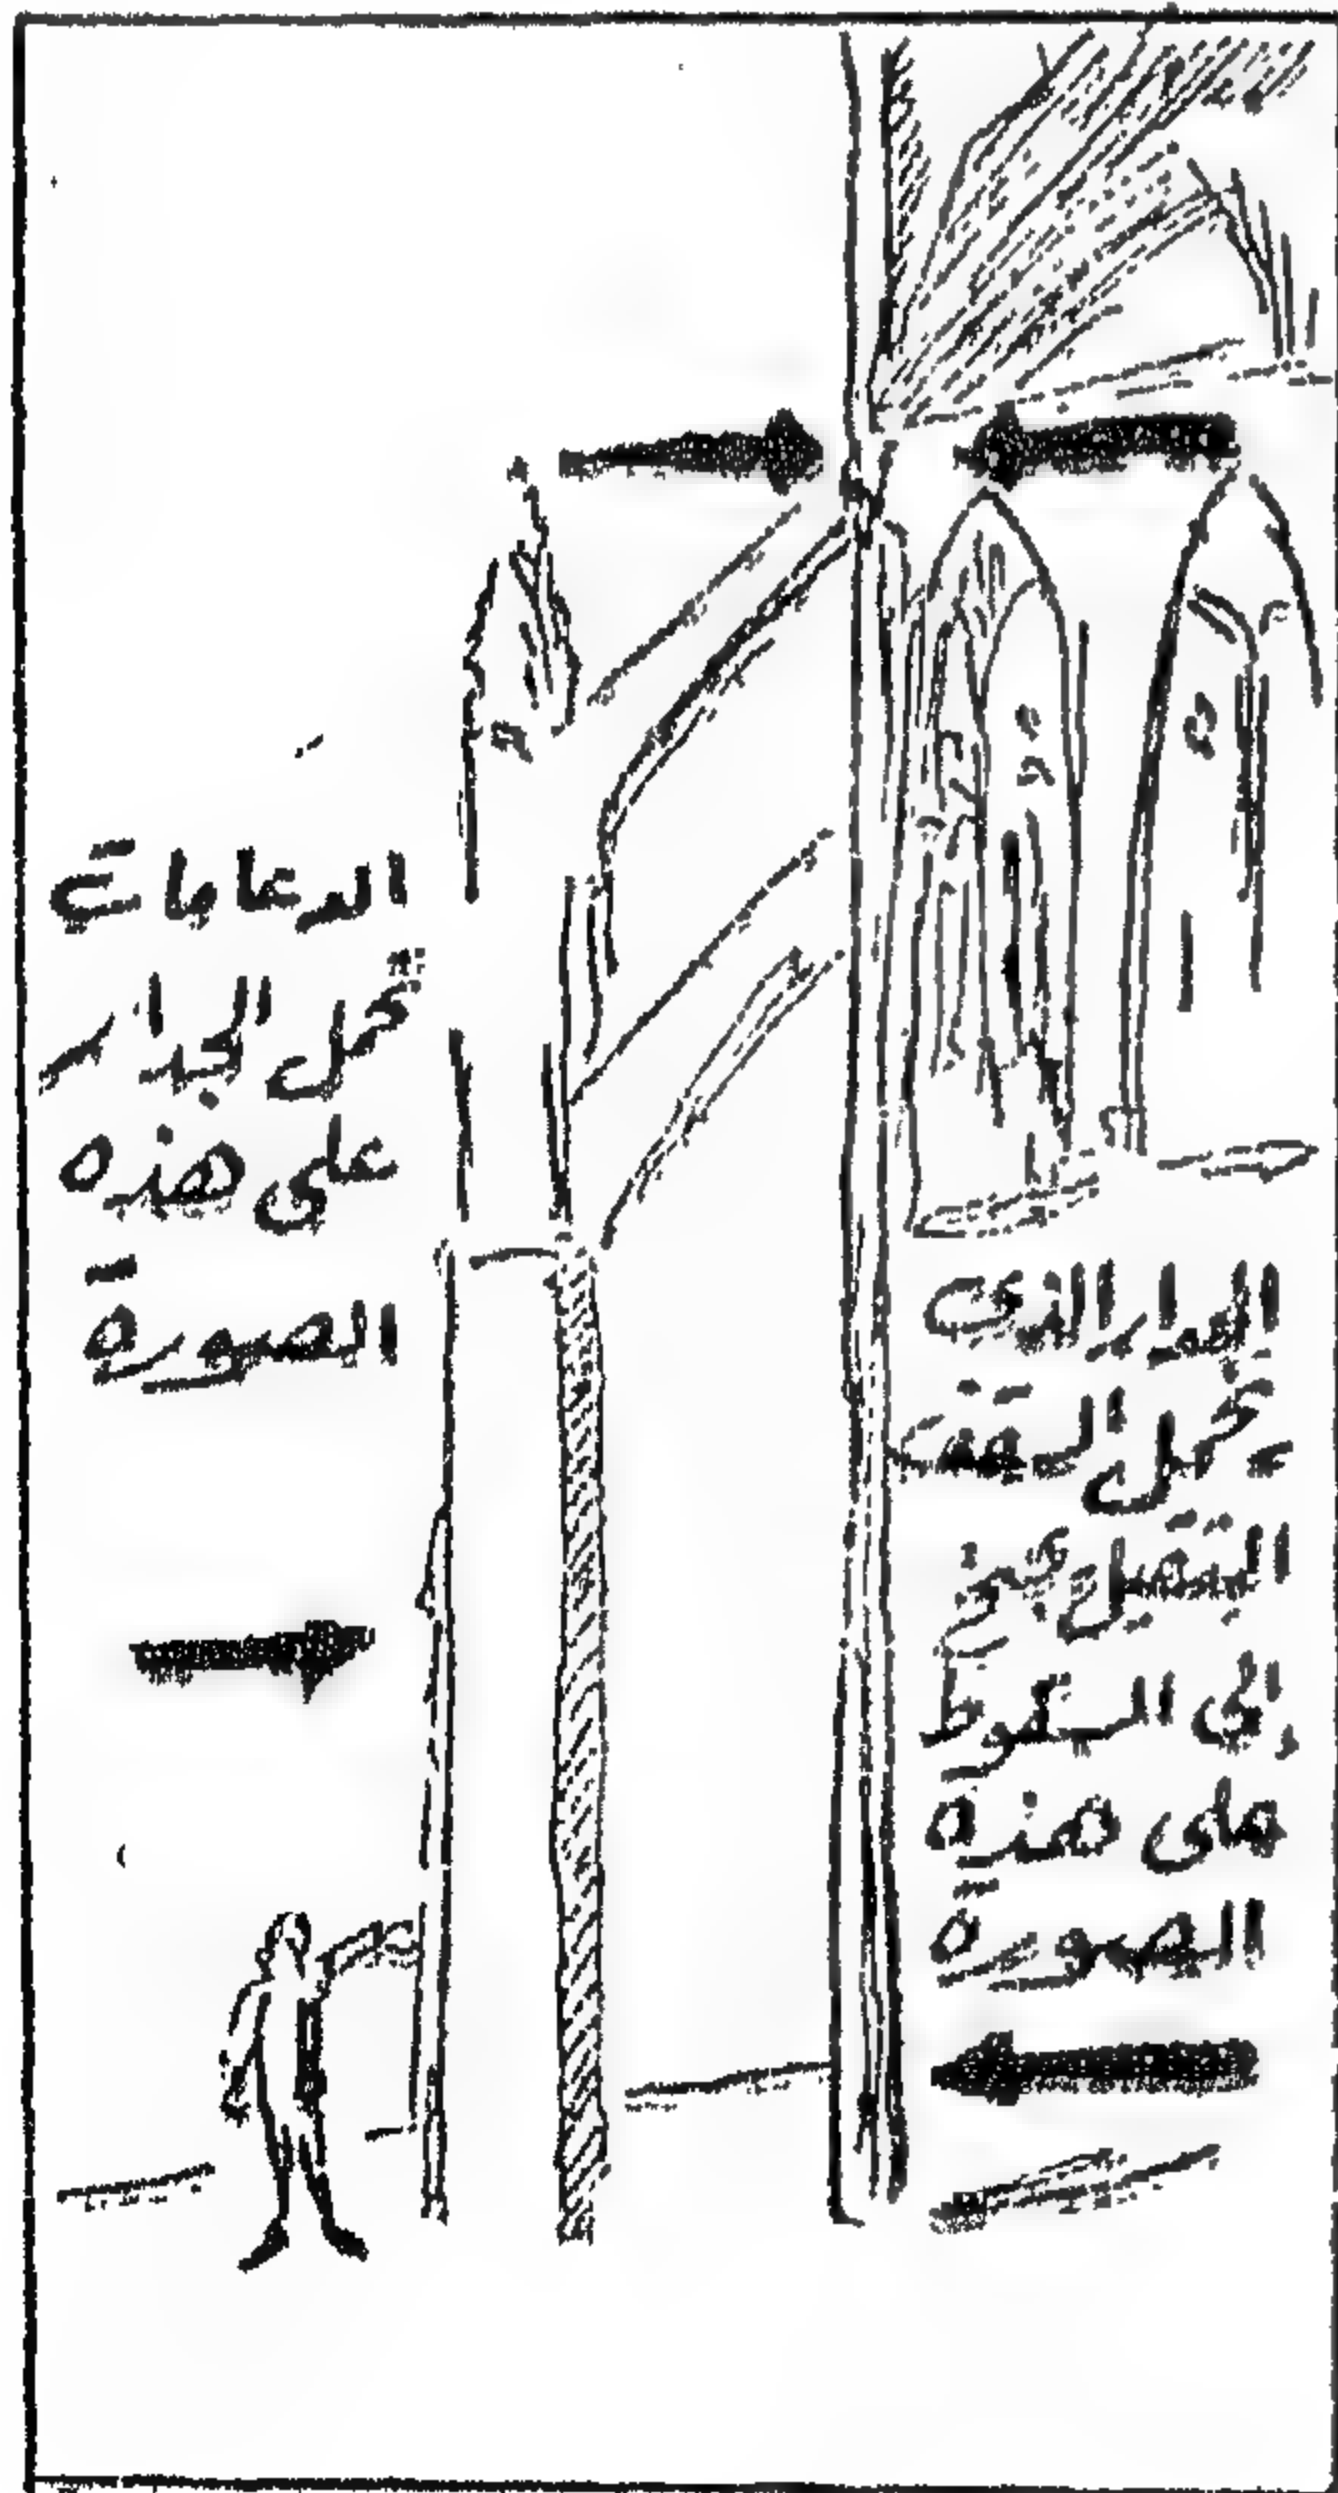 الدعامات
تحمل الجدار
على هذه
الصورة
الجدار الذى
يحمل السقف
الثقيل يجنح
إلى السقوط
على هذه
الصورة